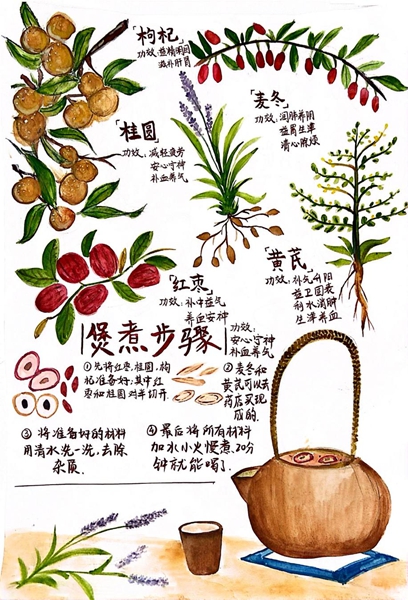 「枸杞」
功效:益精明目
滋补肝肾
「麦冬」
功效:润肺养阴
益胃生津
清心除烦
「桂圆」
功效:减轻疲劳
安心宁神
补血养气
「黄芪」
功效:补气升阳
益卫固表
利水消肿
生津养血
「红枣」
功效:补中益气
养血安神
煲煮步骤
功效:
安心宁神
补血养气
①先将红枣、桂圆、枸
杞准备好,其中红
枣和桂圆对半切开.
②麦冬和
黄芪可以去
药店买现
成的.
③将准备好的材料
用清水洗一洗,去除
杂质.
④最后将所有材料
加水小火慢煮、30分
钟就能喝了.